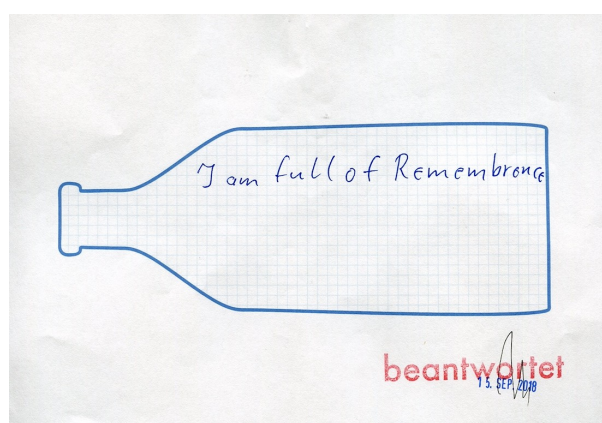 I am full of Remembrance
beantwortet
15. SEP. 2018